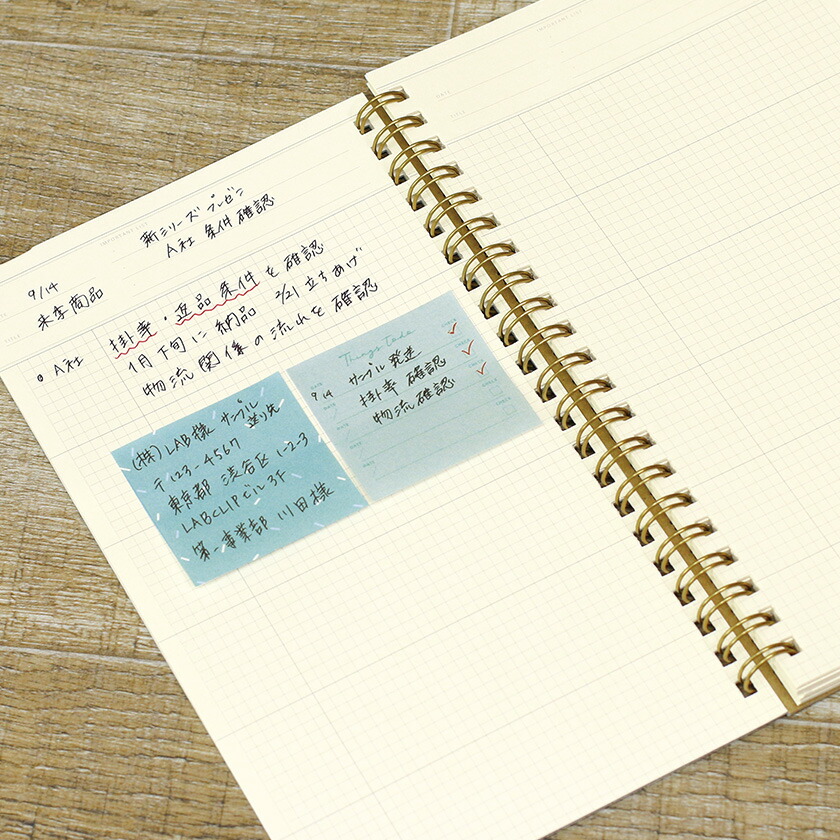 IMPORTANT LIST
新シリーズ プレゼン
A社 条件確認
9/14
来季商品
TITLE
A社
掛率・返品条件を確認
1月下旬に納品 2/21立ちあげ
物流関係の流れを確認
(株)LAB様 サンプル送り先
〒123-4567
東京都 渋谷区 1-2-3
LABCLIPビル3F
第一事業部 川田様
Things todo
DATE
CHECK
9/14 サンプル発送
DATE
CHECK
掛率 確認
DATE
CHECK
物流確認
DATE
CHECK
DATE
CHECK
DATE
IMPORTANT LIST
DATE
TITLE